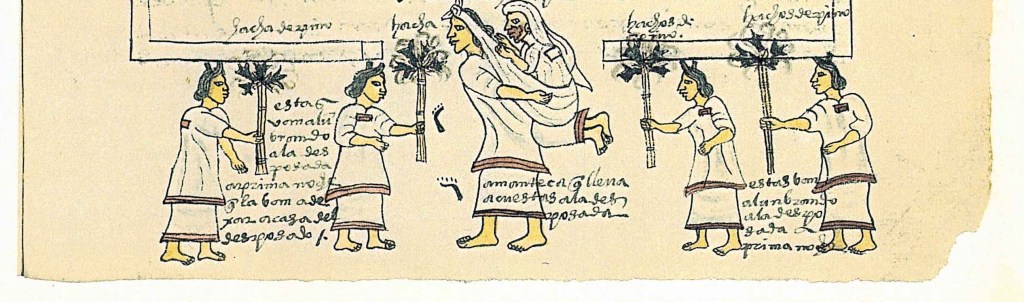 hacha de pino
hacha
hachos de
pino.
hachos de pino
estas q
van alu
brando
a la des
posada
a prima noche
q la ban a de
xar a casa del
desposado /.
amanteca q lleva
a cuestas a la des
posada
estas ban
alunbrando
a la despo
sada a
prima noche